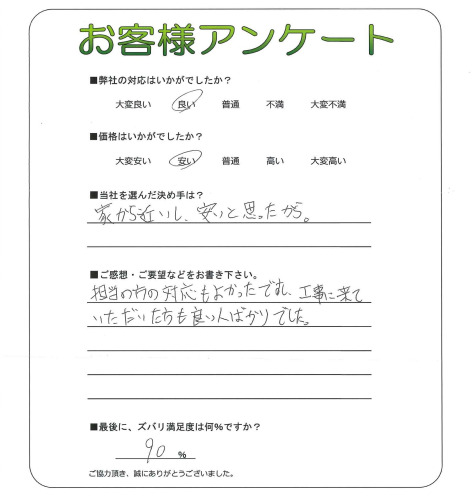 お客様アンケート
■弊社の対応はいかがでしたか？
大変良い 良い 普通 不満 大変不満
■価格はいかがでしたか？
大変安い 安い 普通 高い 大変高い
■当社を選んだ決め手は？
家から近いし、安いと思ったから。
■ご感想・ご要望などをお書き下さい。
担当の方の対応もよかったですし、工事に来て
いただいた方も良い人ばかりでした。
■最後に、ズバリ満足度は何％ですか？
90 ％
ご協力頂き、誠にありがとうございました。